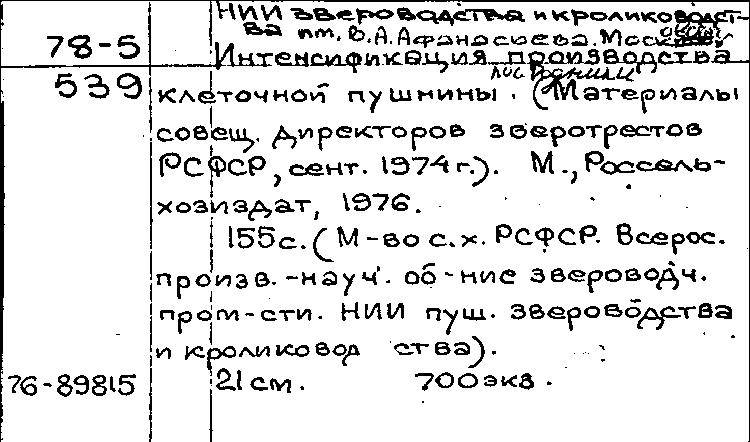 НИИ звероводства и кролиководст-
ва им. В.А.Афанасьева. Московск
78-5 Интенсификация производства
539 клеточной пушнины. (Материалы
совещ. директоров зверотрестов
РСФСР, сент. 1974 г.). М., Россель-
хозиздат, 1976.
155 с. (М-во с.х. РСФСР. Всерос.
произв.-науч. об-ние звероводч.
пром-сти. НИИ пуш. звероводства
и кролиководства).
76-89815 21 см. 700 экз.